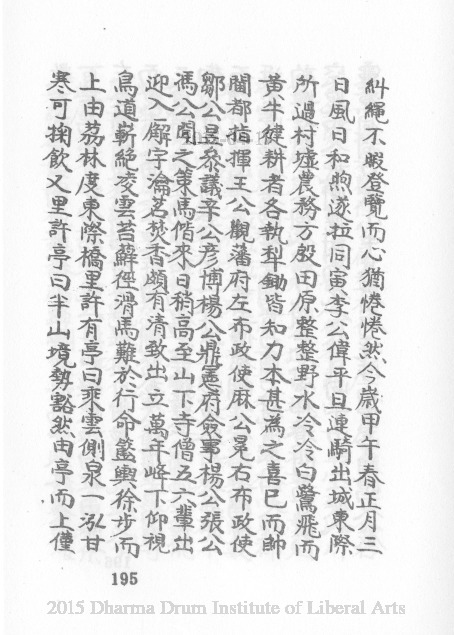 糾繩不暇登覽而心猶惓惓然今歲甲午春正月三
日風日和煦遂拉同寅李公偉平旦連騎出城東際
所過村墟農務方殷田原整整野水泠泠白鷺飛而
黃牛健耕者各執犁鋤皆知力本甚為之喜巳而帥
閫都指揮王公觀藩府左布政使麻公冕右布政使
鄒公昱叅議辛公彥博楊公鼎憲府僉事楊公張公
馮公聞之策馬偕來日稍高至山下寺僧五六輩出
迎入廨宇瀹茗焚香頗有清致出立萬年峰下仰視
鳥道嶄絕凌雲苔蘚徑滑馬難於行命籃輿徐步而
上由荔林度東際橋里許有亭曰乘雲側泉一泓甘
寒可掬飲又里許亭曰半山境勢豁然由亭而上僅
195
2015 Dharma Drum Institute of Liberal Arts